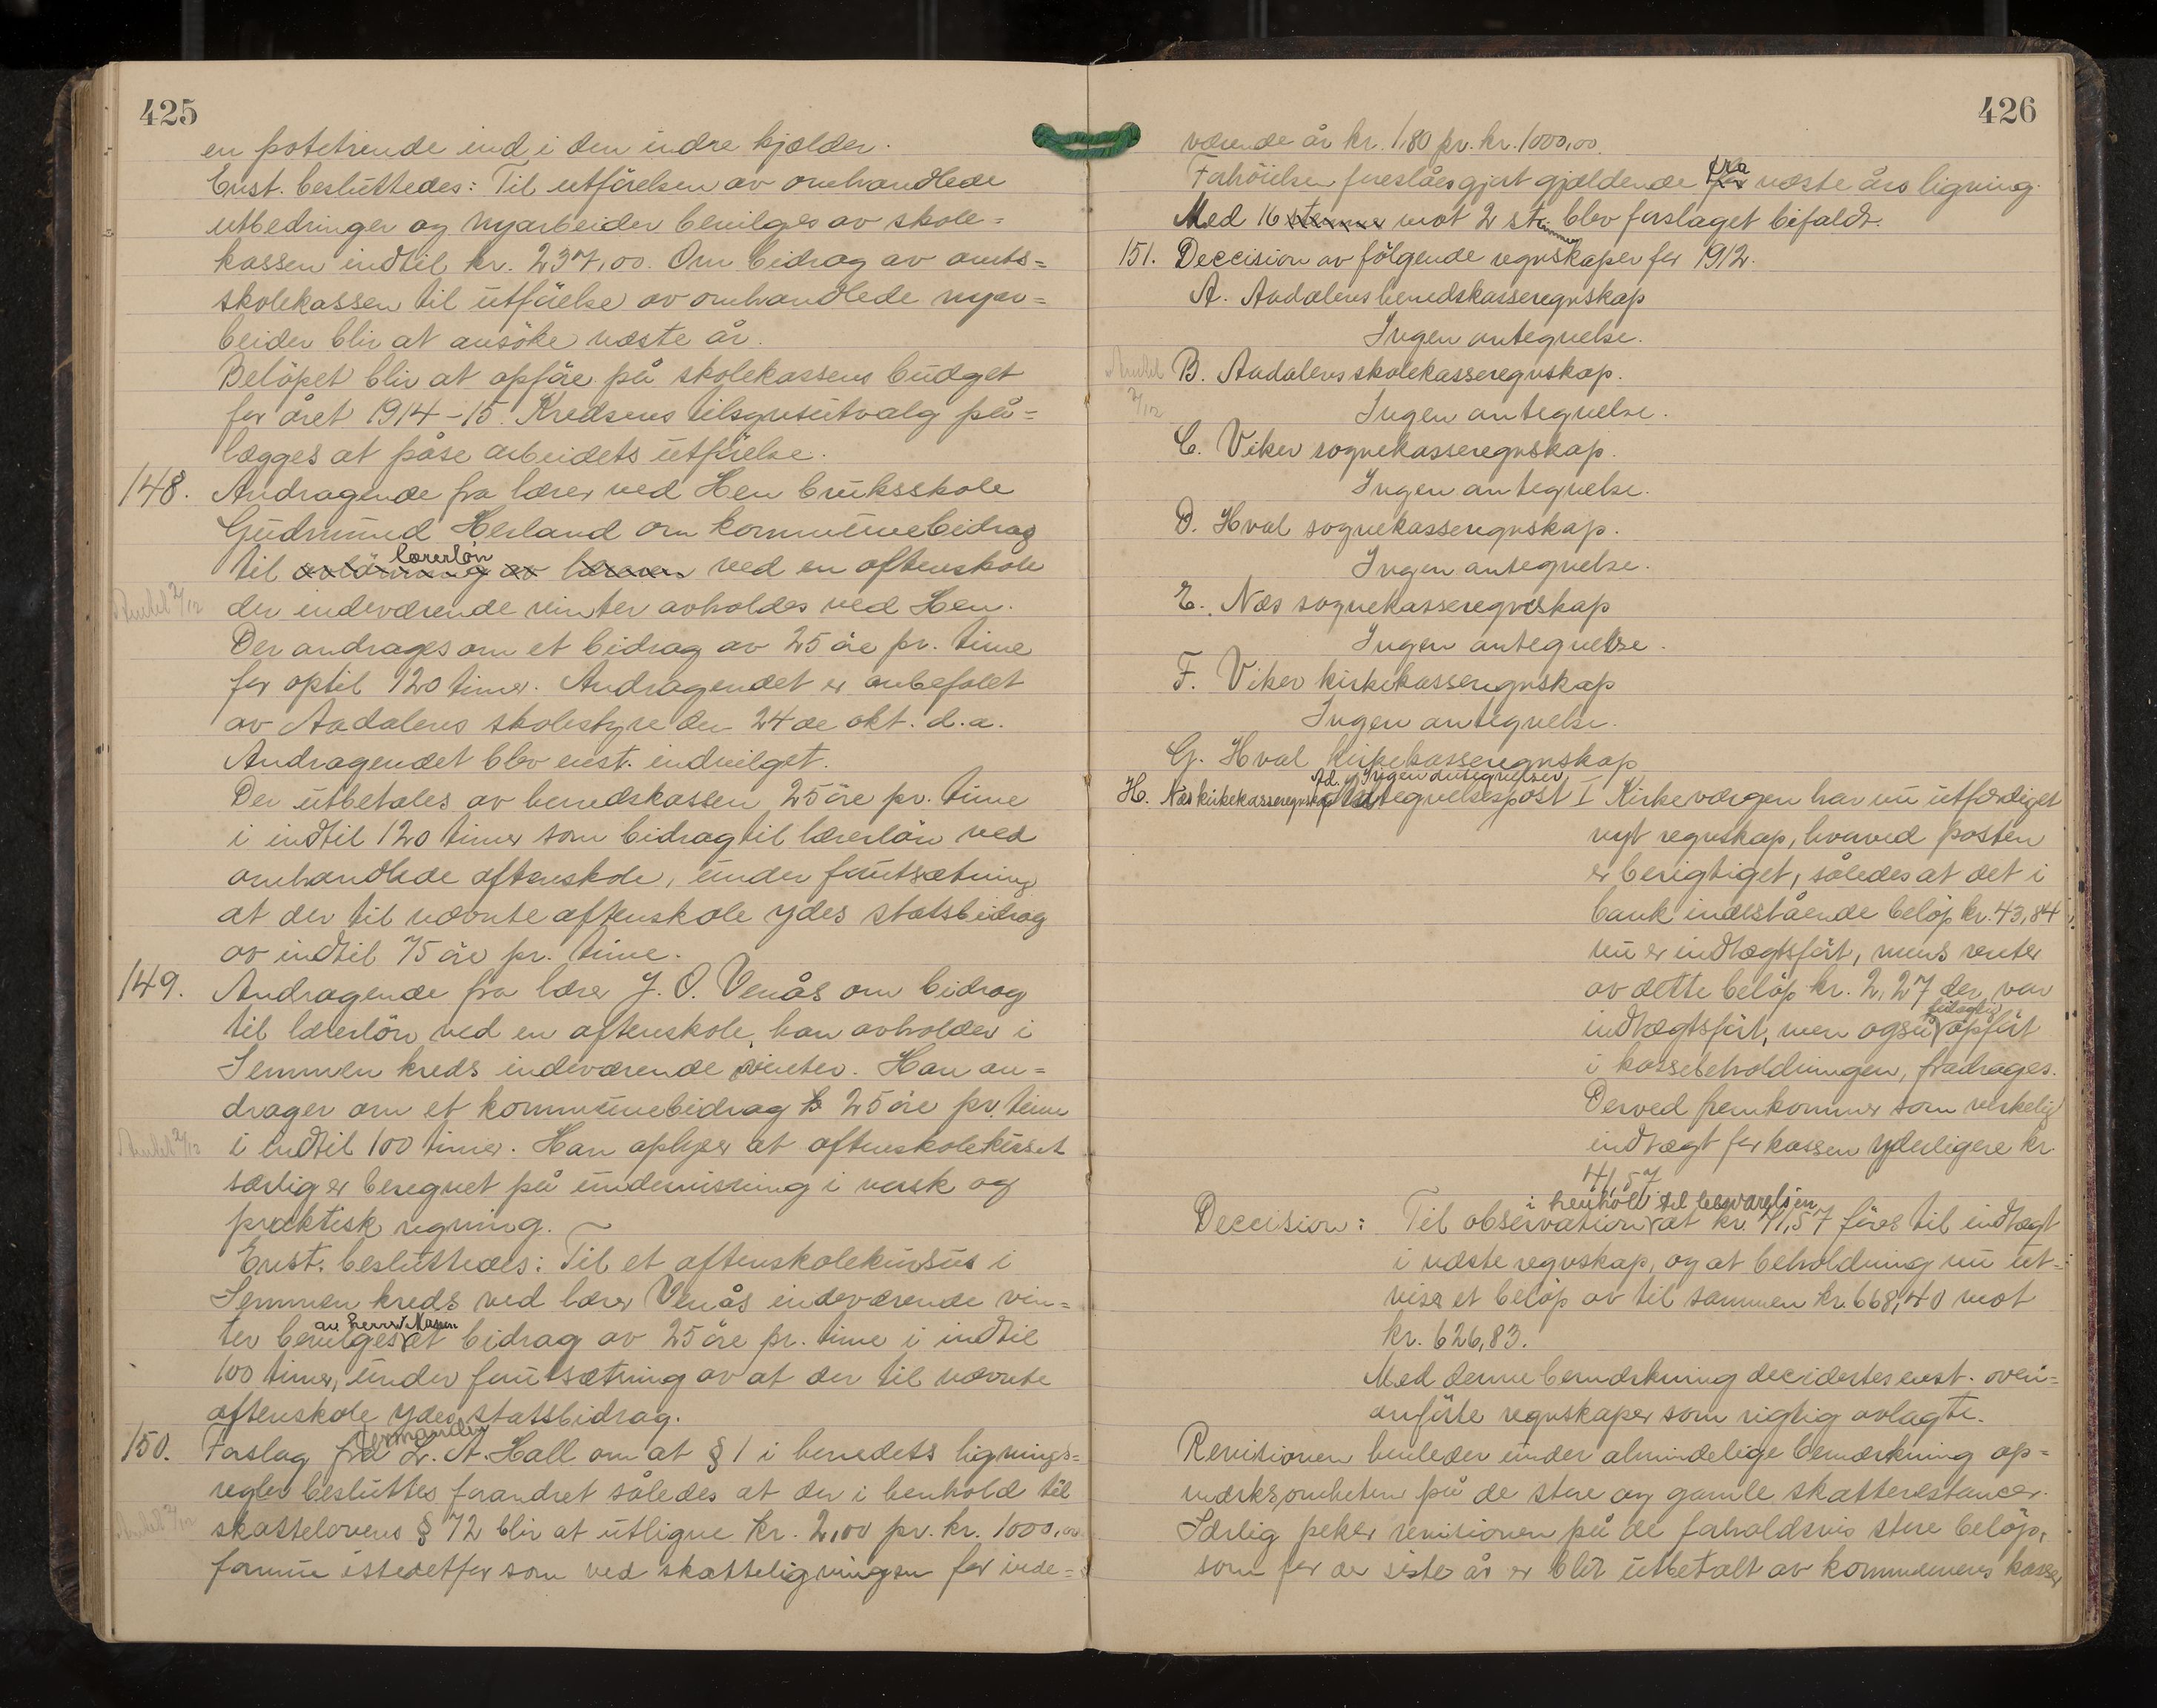 425
en potetrende ind i den indre kjælder.
Enst. besluttedes: Til utførelsen av omhandlede
utbedringer og nyarbeider bevilges av skole=
kassen indtil kr. 237,00. Om bidrag av amts=
skolekassen til utførelse av omhandlede nyar=
beider blir at ansöke næste år.
Belöpet blir at opföre på skolekassens budget
for året 1914-15. Kredsens tilsynsutvalg på=
lægges at påse arbeidets utførelse.
148. Andragende fra lærer ved Hen bruksskole
Gudmund Herland om kommunebidrag
lærerlön
til avlönning av læreren ved en aftenskole
Anmelt 2/12 der indeværende vinter avholdes ved Hen.
Der andrages om et bidrag av 25 öre pr. time
for optil 120 timer. Andragendet er anbefalet
av Aadalens skolestyre den 24de okt. d.a.
Andragendet blev enst. indvilget.
Der utbetales av herredskassen 25 öre pr. time
i indtil 120 timer som bidrag til lærerlön ved
omhandlede aftenskole, under forutsætning
at der til nævnte aftenskole ydes statsbidrag
av indtil 75 öre pr. time.
149. Andragende fra lærer J. O. Venås om bidrag
til lærerlön ved en aftenskole, han avholder i
Semmen kreds indeværende vinter. Han an=
drager om et kommunebidrag 25 öre pr. time
Anmelt 2/12 i indtil 100 timer. Han oplyser at aftenskolekurset
særlig er beregnet på undervisning i norsk og
praktisk regning. ~
Enst. besluttedes: Til et aftenskolekursus i
Semmen kreds ved lærer Venås indeværende vin=
av herredskassen
ter bevilges et bidrag av 25 öre pr. time i indtil
100 timer, under forutsætning av at der til nævnte
aftenskole ydes statsbidrag.
formanden
150. Forslag fra L. A. Hall om at § 1 i herredets lignings=
regler besluttes forandret således at der i henhold til
Anmelt 2/12 skattelovens § 72 blir at utligne kr. 2,00 pr. kr. 1000,00
formue istedetfor som ved skatteligningen for inde=
426
værende år kr. 1,80 pr. kr. 1000,00.
fra
Forhöielsen foreslåes gjort gjældende for næste års ligning.
Med 16 stemmer mot 2 stemmer blev forslaget bifaldt.
151. Deccision av fölgende regnskaper for 1912.
A. Aadalens herredskasseregnskap
Ingen antegnelse.
Anmelt B. Aadalens skolekasseregnskap.
2/12 Ingen antegnelse.
C. Viker sognekasseregnskap.
Ingen antegnelse.
D. Hval sognekasseregnskap.
Ingen antegnelse.
E. Næs sognekasseregnskap
Ingen antegnelse.
F. Viker kirkekasseregnskap
Ingen antegnelse.
G. Hval kirkekasseregnskap
Ingen antegnelser
H. Næs kirkekasseregnskap Ad. antegnelsespost I Kirkeværgen har nu utfærdiget
nyt regnskap, hvorved posten
er berigtiget, således at det i
bank indestående belöp kr. 43,84
nu er indtægtsfört, mens renter
av dette belöp kr. 2,27 der var
feilagtig
indtægtsfört, men også opfört
i kassebeholdningen, fradrages.
Derved fremkommer som virkelig
indtægt for kassen yderligere kr.
41,57
i henhold til besvarelsen
Deccision: Til observation at kr. 41,57 föres til indtægt
i næste regnskap, og at beholdning nu ut=
viser et belöp av til sammen kr. 668,40 mot
kr. 626,83.
Med denne bemærkning decidertes enst. oven=
anförte regnskaper som rigtig avlagte.
Revisionen henleder under almindelige bemærkning op=
mærksomheten på de store og gamle skatterestancer.
Særlig peker revisionen på de forholdsvis store belöp,
som for de siste år er blit utbetalt av kommunens kasser